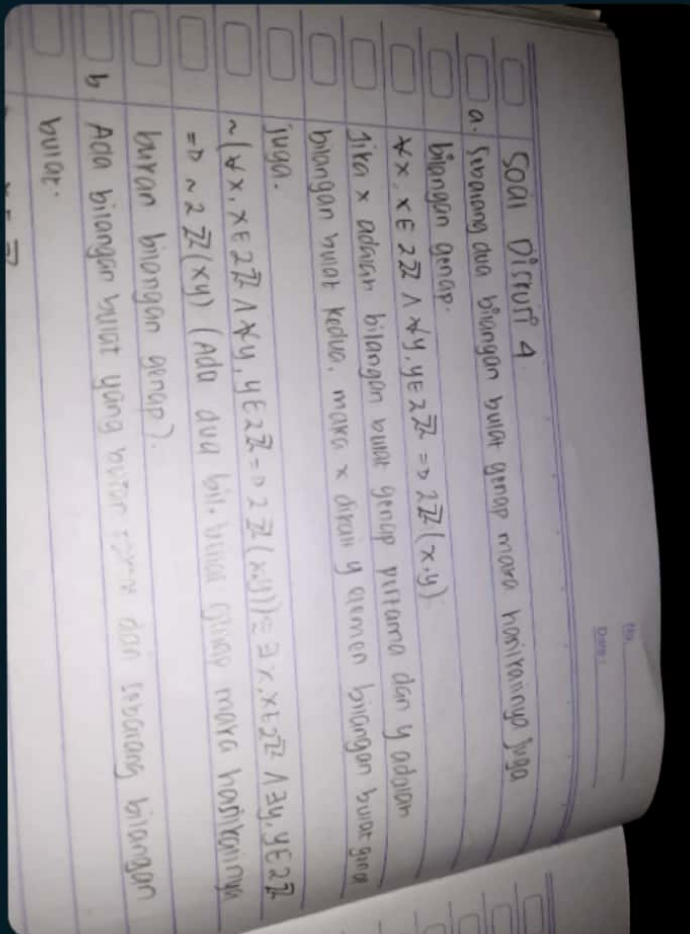 No.
Date:
Soal Diskusi 4.
a. Sebarang dua bilangan bulat genap maka hasilkalinya juga
bilangan genap.
∀x, x ∈ 2ℤ ∧ ∀y, y ∈ 2ℤ => 2ℤ(x.y)
Jika x adalah bilangan bulat genap pertama dan y adalah
bilangan bulat kedua, maka x dikali y elemen bilangan bulat gena
juga.
~(∀x, x ∈ 2ℤ ∧ ∀y, y ∈ 2ℤ => 2ℤ(x.y)) ≈ ∃x, x ∈ 2ℤ ∧ ∃y, y ∈ 2ℤ
=> ~2ℤ(xy) (Ada dua bil. bulat genap maka hasilkalinya
bukan bilangan genap).
b. Ada bilangan bulat yang bukan dan sebarang bilangan
bulat.